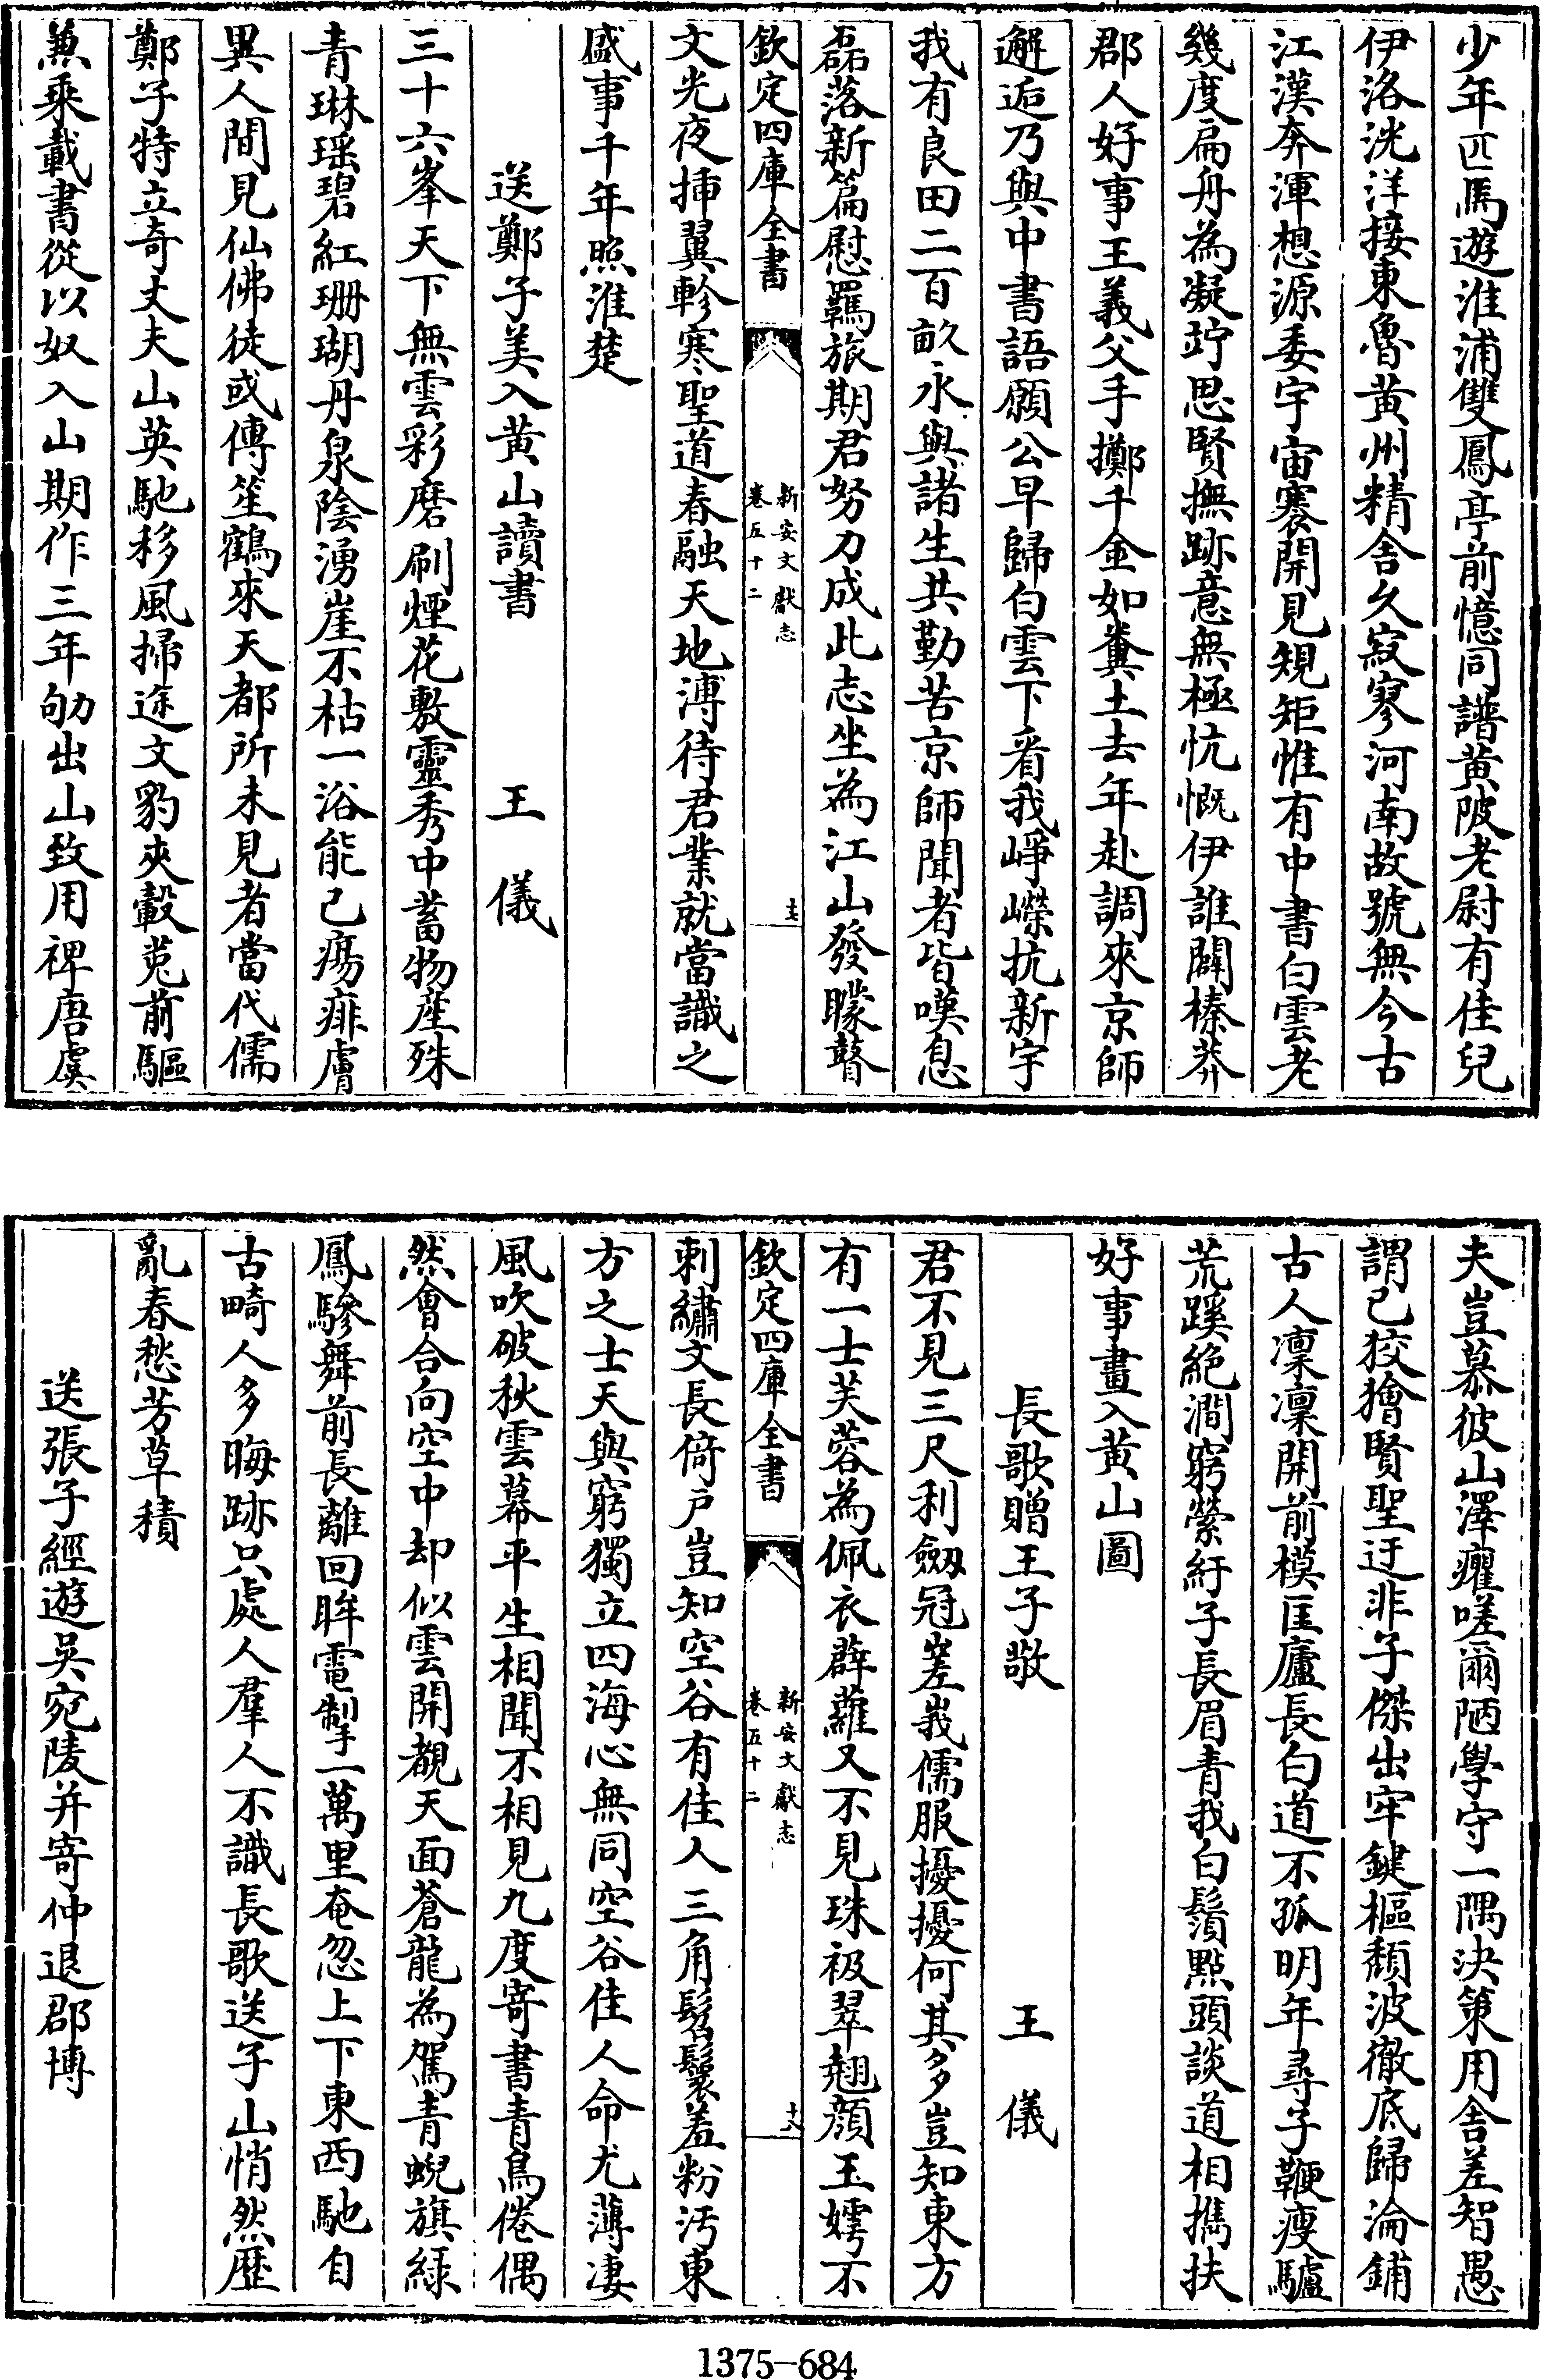 少年匹馬遊淮浦雙鳳亭前憶同譜黄陂老尉有佳兒
伊洛洸洋接東魯黄州精舍久寂寥河南故號無今古
江漢奔渾想源委宇宙褰開見規矩惟有中書白雲老
幾度扁舟為凝竚思賢撫跡意無極忼慨伊誰闢榛莽
郡人好事王義父手擲千金如糞土去年赴調來京師
邂逅乃與中書語願公早歸白雲下看我崢嶸抗新宇
我有良田二百畝永與諸生共勤苦京師聞者皆嘆息
磊落新篇慰羈旅期君努力成此志坐為江山發矇瞽
欽定四庫全書
新安文獻志
卷五十二
十七
文光夜挿翼軫寒聖道春融天地溥待君業就當識之
盛事千年照淮楚
送鄭子美入黄山讀書
王儀
三十六峯天下無雲彩磨刷煙花敷靈秀中蓄物産殊
青琳瑶碧紅珊瑚丹泉陰湧崖不枯一浴能已瘍痱膚
異人間見仙佛徒或傳笙鶴來天都所未見者當代儒
鄭子特立奇丈夫山英馳移風掃途文豹夾轂莵前驅
兼乘載書從以奴入山期作三年劬出山致用裨唐虞
夫豈慕彼山澤癯嗟爾陋學守一隅決策用舍差智愚
謂已狡獪賢聖迂非子傑出牢鍵樞頽波徹底歸淪鋪
古人凛凛開前模匡廬長白道不孤明年尋子鞭瘦驢
荒蹊絶澗窮縈紆子長眉青我白鬚點頭談道相攜扶
好事畫入黄山圖
長歌贈王子敬
王儀
君不見三尺利劔冠嵳峩儒服擾擾何其多豈知東方
有一士芙蓉為佩衣薜蘿又不見珠衱翠翹顔玉嫮不
欽定四庫全書
新安文獻志
卷五十二
十八
刺繡文長倚戶豈知空谷有佳人三角髫鬟羞粉汚東
方之士天與窮獨立四海心無同空谷佳人命尤薄凄
風吹破秋雲幕平生相聞不相見九度寄書青鳥倦偶
然會合向空中却似雲開覩天面蒼龍為駕青蜺旗緑
鳳驂舞前長離回眸電掣一萬里奄忽上下東西馳自
古畸人多晦跡只處人羣人不識長歌送子山悄然歷
亂春愁芳草積
送張子經遊吳宛陵并寄仲退郡博
1375-684